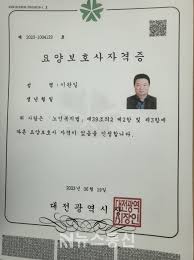 제 2023-1004129 호
요양보호사자격증
성 명 : 이환일
생 년 월 일
위 사람은 「노인복지법」 제39조의2 제2항 및 제3항에
따른 요양보호사 자격이 있음을 인정합니다.
2023년 06월 19일
대전광역시장
대전광역
시장인
뉴스통신